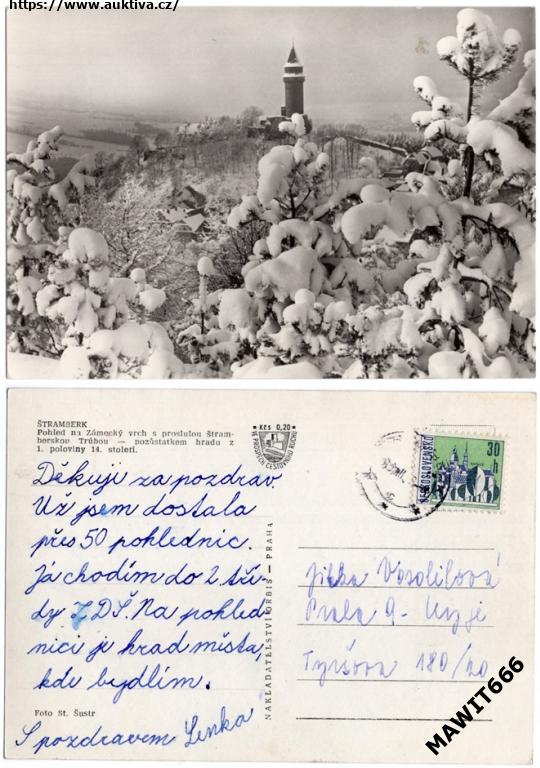 https://www.auktiva.cz/
ŠTRAMBERK
Pohled na Zámecký vrch s proslulou štram-
berskou Trúbou — pozůstatkem hradu z
1. poloviny 14. století.
Kčs 0,20
VE PROSPĚCH CESTOVNÍHO RUCHU
ČESKOSLOVENSKO
30
h
Děkuji za pozdrav.
Už jsem dostala
přes 50 pohlednic.
Já chodím do 2 tří-
dy ZDŠ. Na pohled-
nici je hrad města,
kde bydlím.
S pozdravem Lenka
Foto St. Šustr
NAKLADATELSTVÍ ORBIS — PRAHA
Jitka
Praha 9-
Tyršova 180/20
MAWIT666